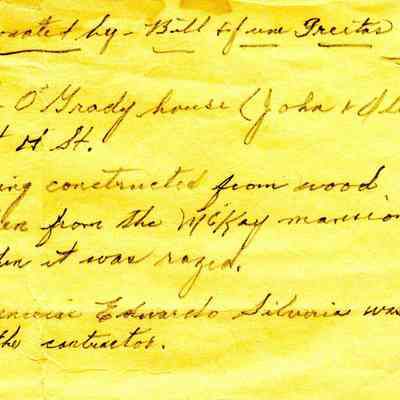 onated by - Bill & June Freitas
- O'Grady house (John &
H St.
ing constructed from wood
en from the McKay mansion
en it was razed.
Eduardo Silveria was
the contractor.